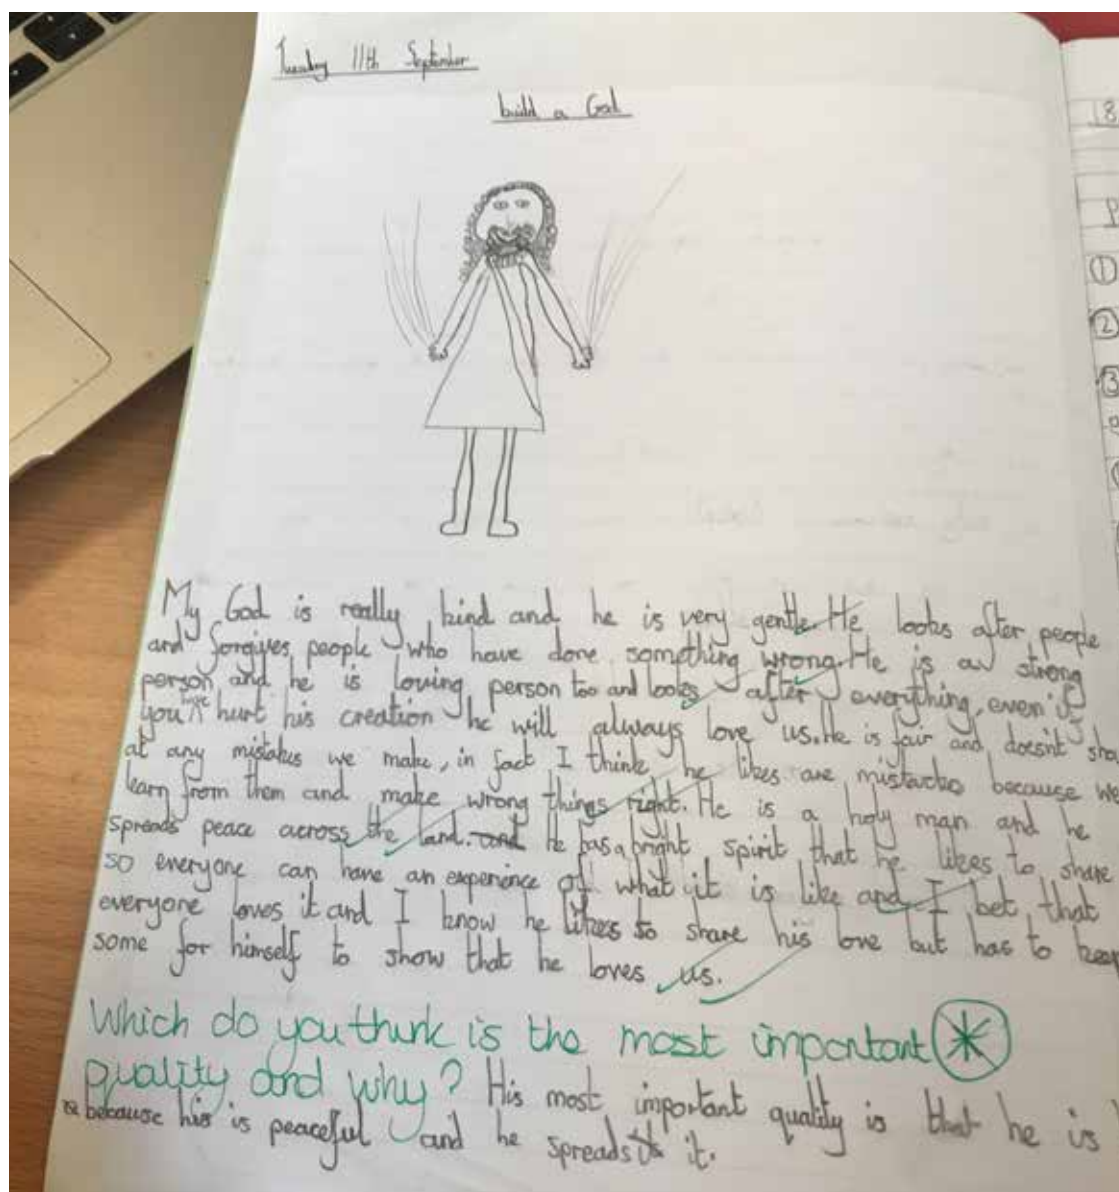 Tuesday 11th September
build a God
My God is really kind and he is very gentle. He looks after people
and forgives people who have done something wrong. He is a strong
person and he is loving person too and looks after everything, even if
you hurt his creation he will always love us. He is fair and doesn't
at any mistakes we make, in fact I think he likes are mistackes because we
learn from them and make wrong things right. He is a holy man and he
spreads peace across the land. He has a bright spirit that he likes to share
so everyone can have an experience of what it is like and I bet that
everyone loves it and I know he likes to share his love but has to keep
some for himself to show that he loves us.
Which do you think is the most important
quality and why? His most important quality is that he is
because his is peaceful and he spreads it.
18
1
2
3